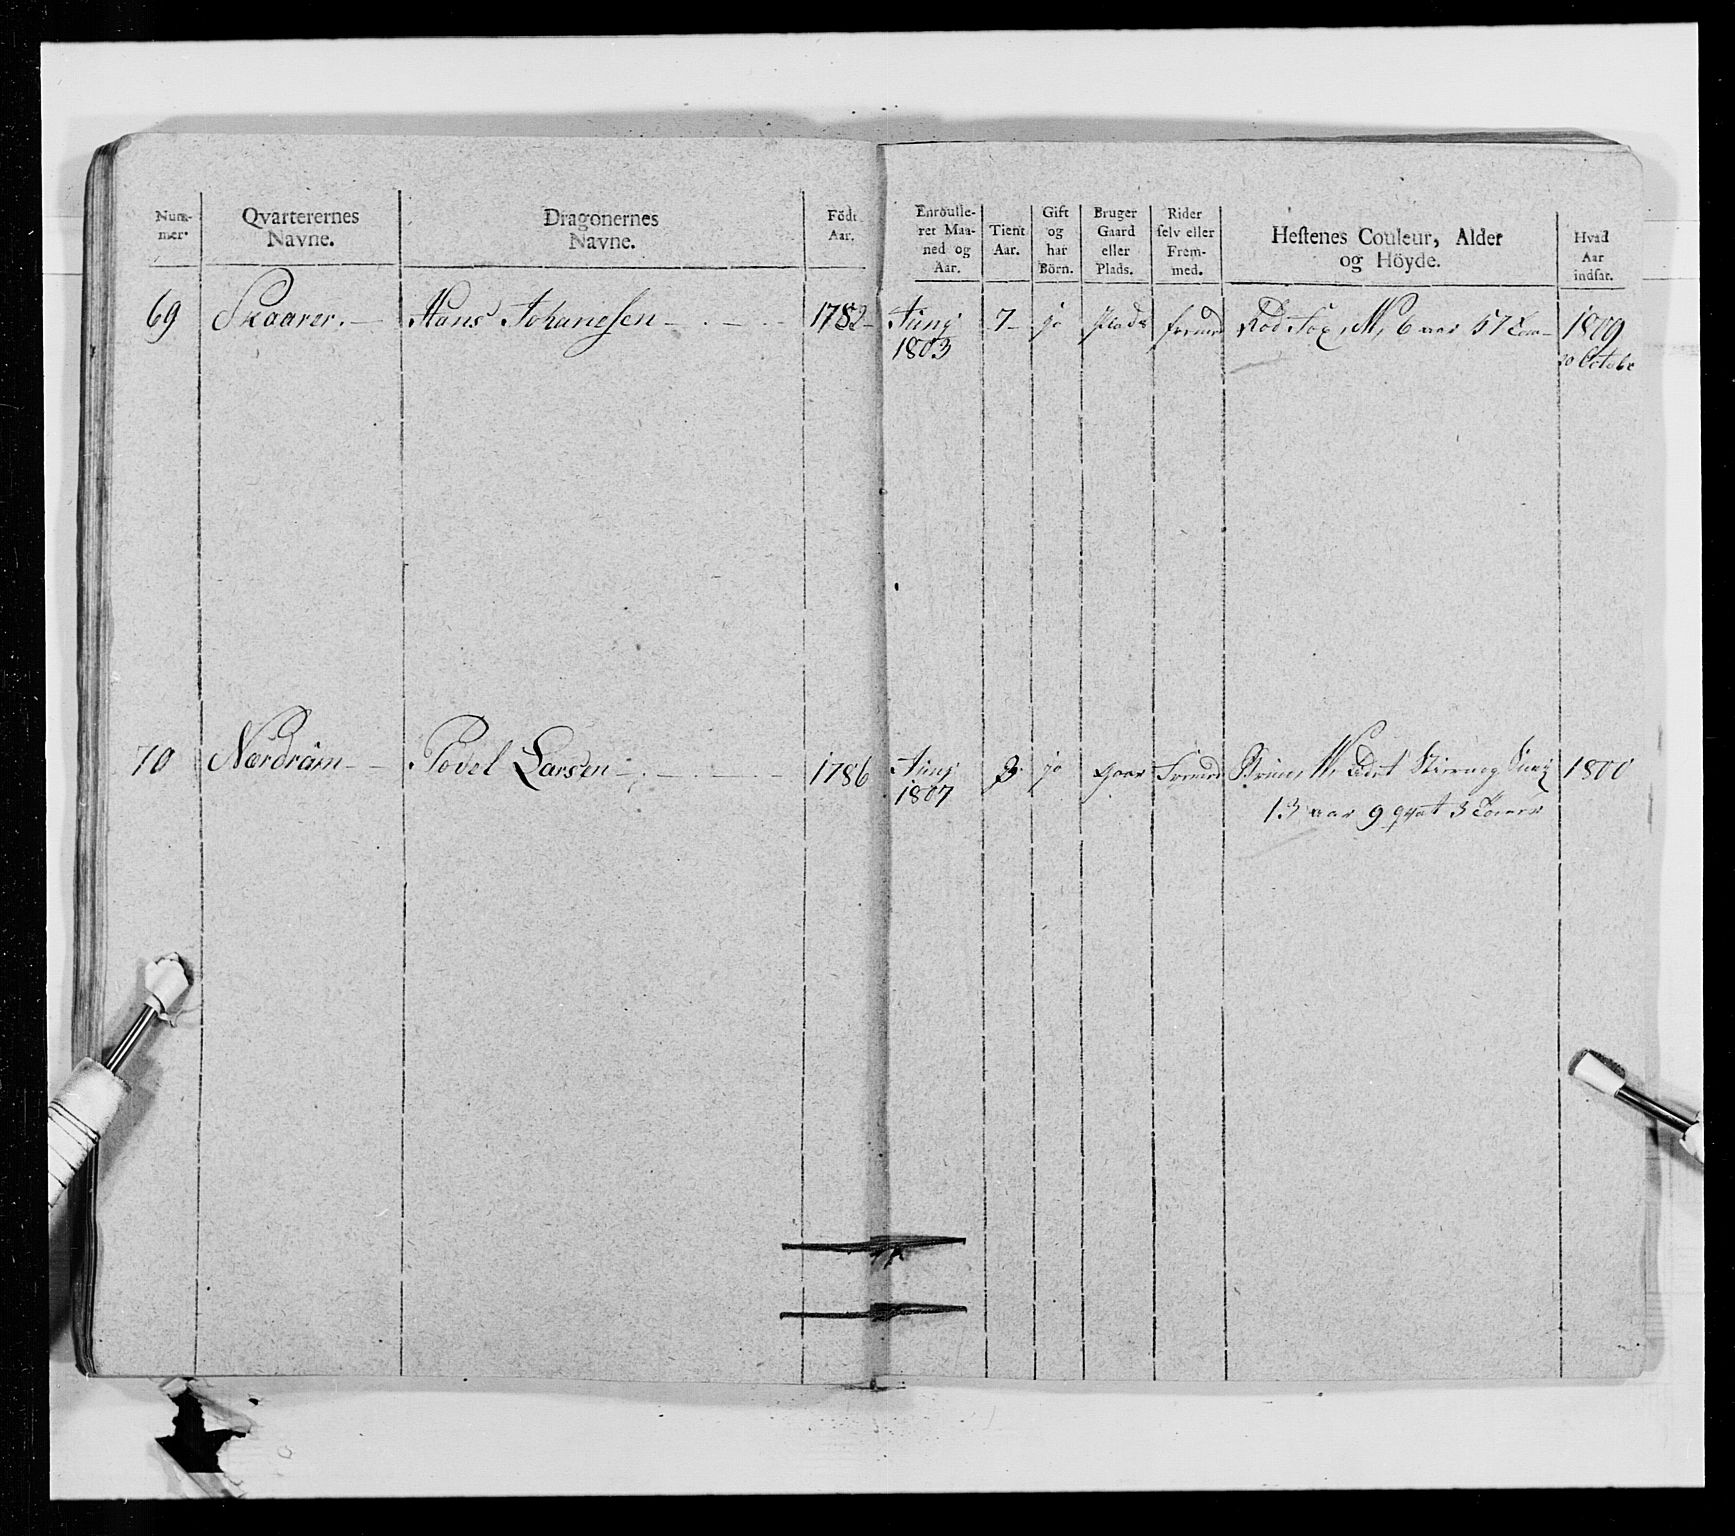 Num-
mer.
Qvarterernes
Navne.
Dragonernes
Navne.
Födt
Aar.
Enroulle-
ret Maa-
ned og
Aar.
Tient
Aar.
Gift
og
har
Börn.
Bruger
Gaard
eller
Plads.
Rider
selv eller
Frem-
med.
Hestenes Couleur, Alder
og Höyde.
Hvad
Aar
indsat.
69 Skaarer. Hans Johanesen 1782 Junj 7 jo Plads fremd Röd Fox, M, 6 aar 57 Tom 1809
1803 20 Octobr
70 Nordråm Povel Larsen 1786 Junj 3 jo gaar Fremd Brun, W, Stierneg 1800
1807 13 aar 9 qvat 3 Tomer